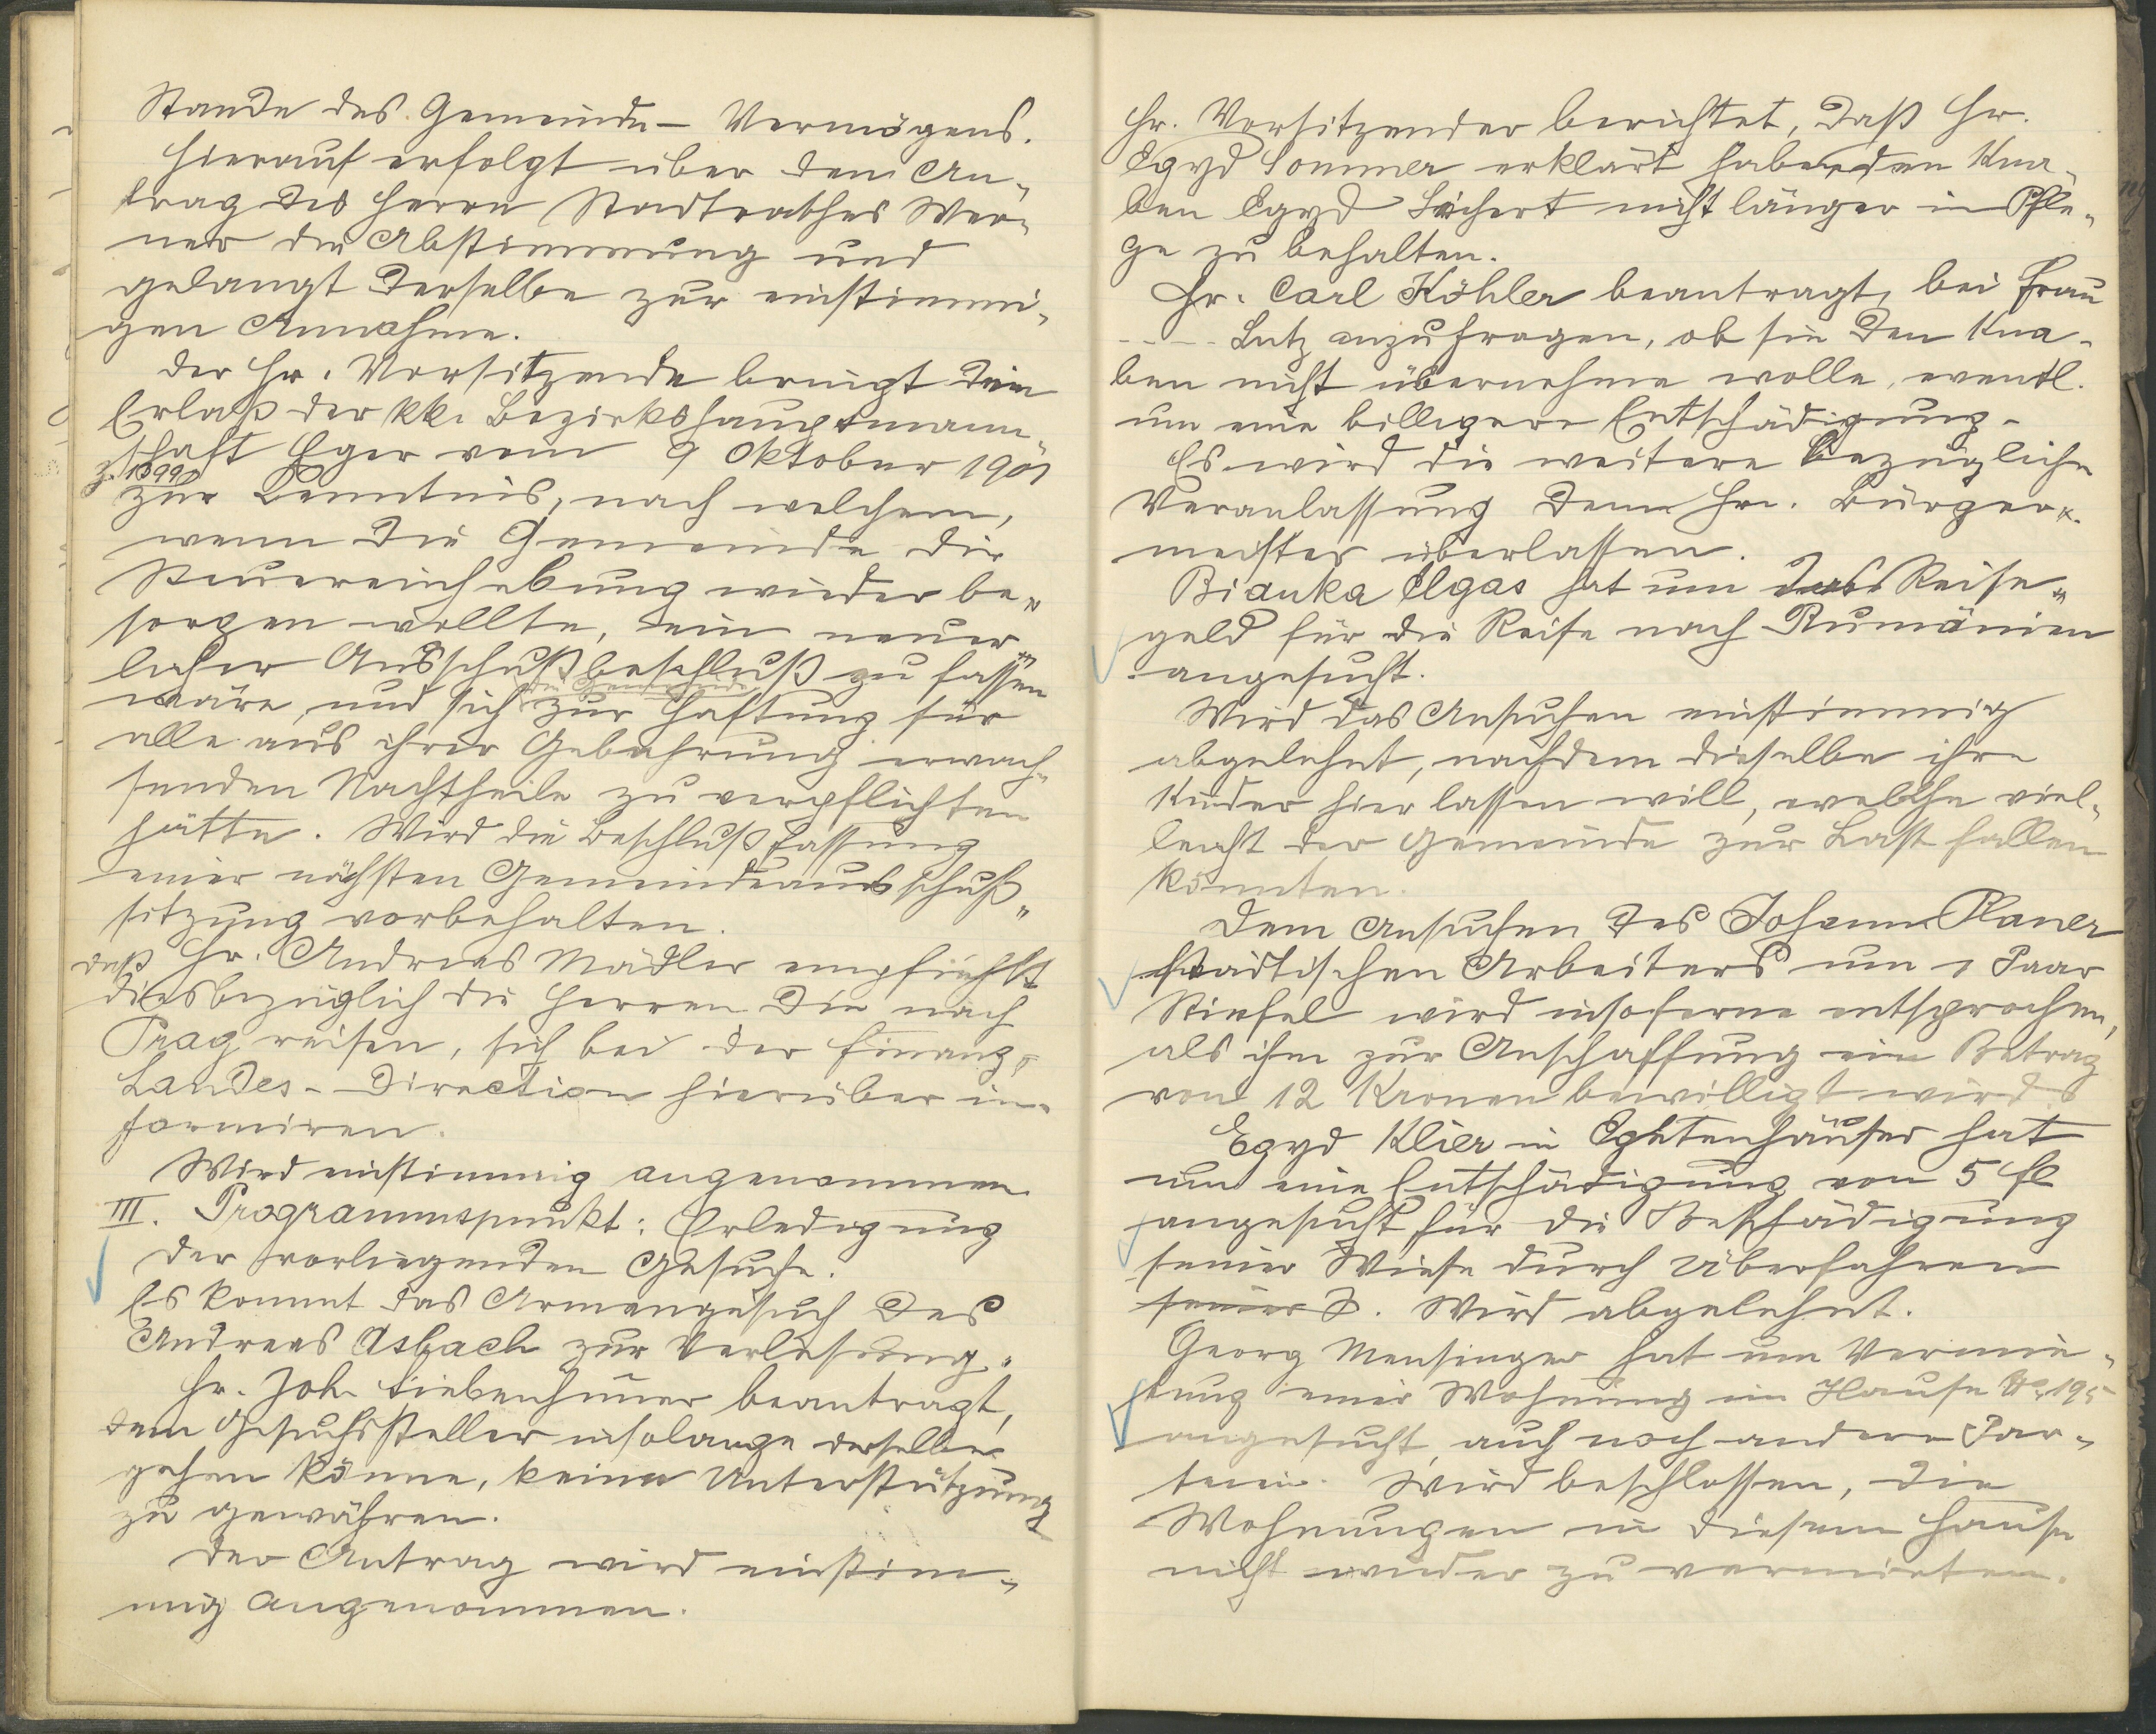 Stande des Gemeinde- Vermögens.
Hierauf erfolgt über den An-
trag des Herrn Stadtrathes Wer-
ner die Abstimmung und
gelangt derselbe zur einstimmi-
gen Annahme.
Der Hr. Vorsitzende bringt den
Erlaß der kk. Bezirkshauptmann-
schaft Eger vom 9 Oktober 1901
zur Kenntnis, nach welchem,
wenn die Gemeinde die
Steuereinhebung wieder be-
sorgen wollte, ein neuer-
licher Ausschußbeschluß zu fassen
die Gemeinde
wäre, und sich zur Haftung für
alle aus ihrer Gebahrung erwach-
senden Nachtheile zu verpflichten
hätte. Wird die Beschlußfassung
einer nächsten Gemeindeausschuß-
sitzung vorbehalten.
Hr. Andreas Mädler empfiehlt daß
diesbezüglich die Herren die nach
Prag reisen, sich bei der Finanz-
Landes-Direction hierüber in-
formiren.
Wird einstimmig angenommen.
III. Programmspunkt: Erledigung
der vorliegenden Gesuche.
Es kommt das Armengesuch des
Andreas Asbach zur Verlesung.
Hr. Joh. Siebenhüner beantragt,
dem Gesuchssteller insolange derselbe
gehen könne, keine Unterstützung
zu gewähren.
Der Antrag wird einstim-
mig angenommen.
Hr. Vorsitzender berichtet, daß Hr.
Egyd Sommer erklärt habe, den Kna-
ben Egyd nicht länger in Pfle-
ge zu behalten.
Hr. Carl Köhler beantragt, bei Frau
---- Lutz anzufragen, ob sie den Kna-
ben nicht übernehme wolle, eventl.
um eine billigere Entschädigung.
Es wird die weitere bezügliche
Veranlassung dem Hrn. Bürger-
meister überlassen.
Bianka Elgas hat um das Reise-
geld für die Reise nach Rumänien
angesucht.
Wird das Ansuchen einstimmig
abgelehnt, nachdem dieselbe ihre
Kinder hier lassen will, welche viel-
leicht der Gemeinde zur Last fallen
könnten.
Dem Ansuchen des Johann Planer
städtischen Arbeiters um 1 Paar
Stiefel wird insoferne entsprochen,
als ihm zur Anschaffung ein Betrag
von 12 Kronen bewilligt wird.
Egyd Klier in hat
um eine Entschädigung von 5 fl
angesucht für die Beschädigung
seiner Wiese durch Überfahren
seiner. Wird abgelehnt.
Georg Mensinger hat um Vermie-
tung einer Wohnung im Hause No 195
angesucht, auch noch andere Par-
teien. Wird beschlossen, die
Wohnungen in diesem Hause
nicht wieder zu vermieten.